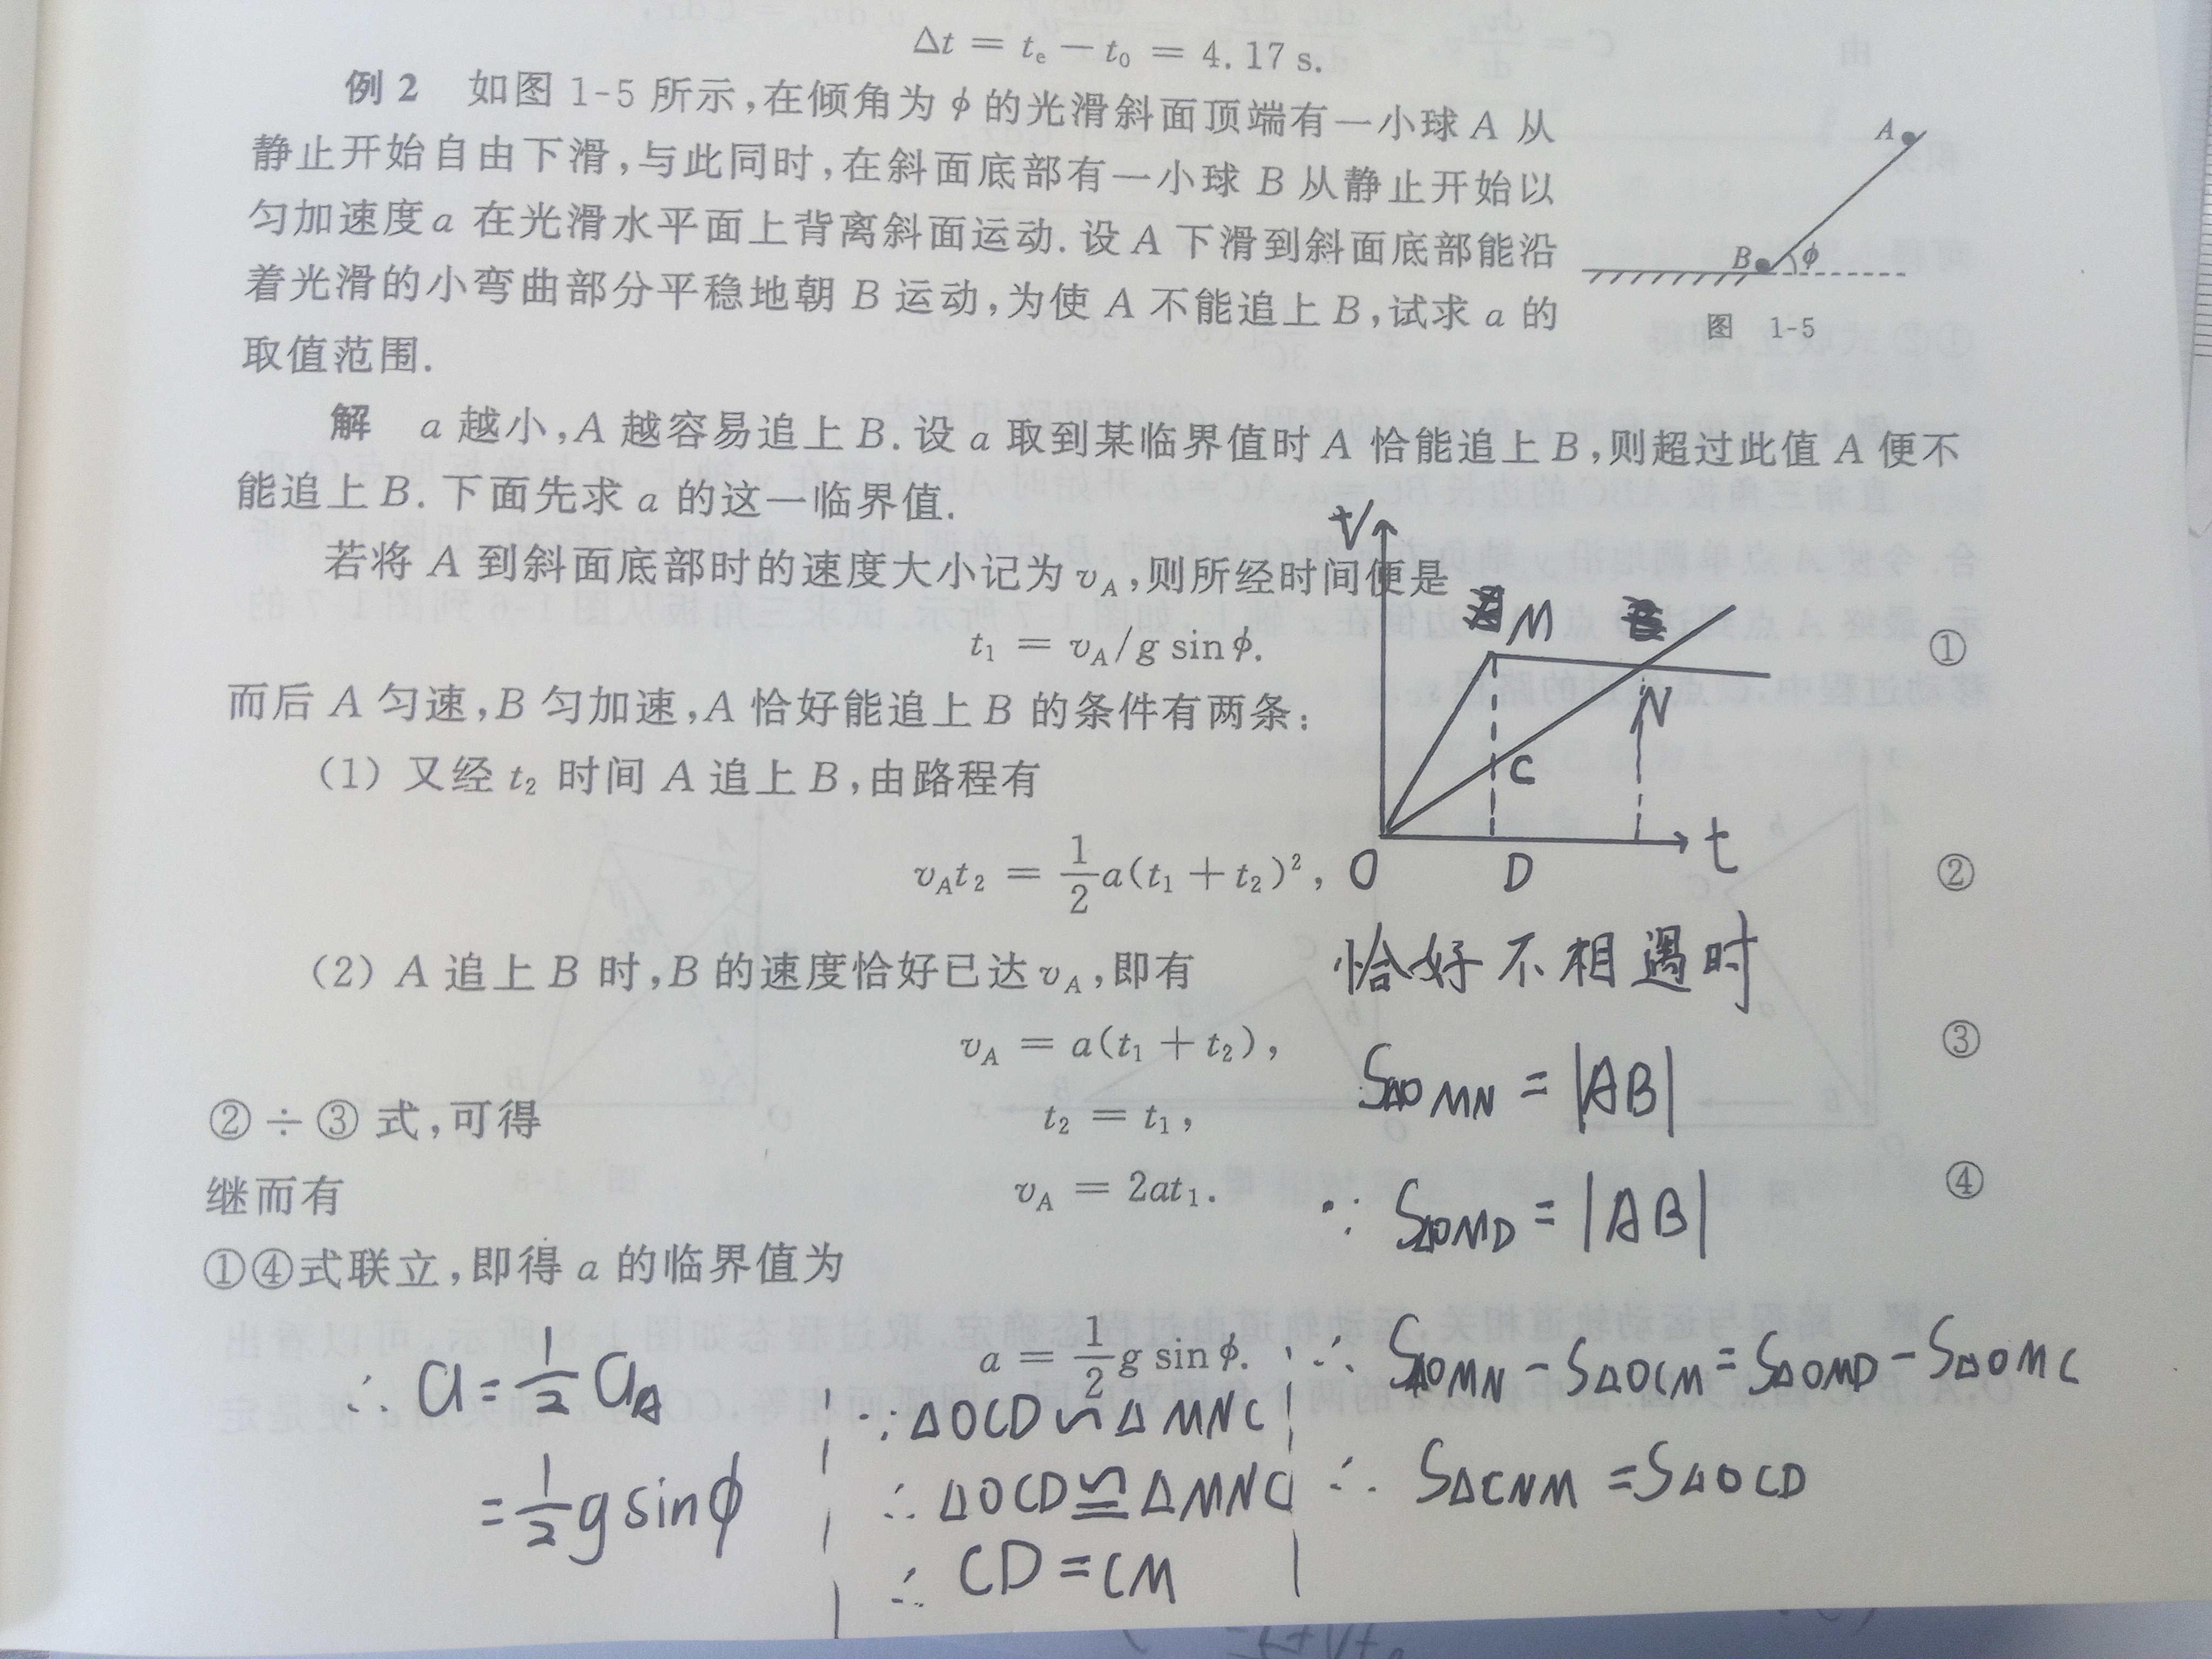 Δt = tₑ − t₀ = 4.17 s.
例 2 如图 1-5 所示,在倾角为 ϕ 的光滑斜面顶端有一小球 A 从
静止开始自由下滑,与此同时,在斜面底部有一小球 B 从静止开始以
匀加速度 a 在光滑水平面上背离斜面运动. 设 A 下滑到斜面底部能沿
着光滑的小弯曲部分平稳地朝 B 运动,为使 A 不能追上 B,试求 a 的
取值范围.
A
B ϕ
图 1-5
解 a 越小,A 越容易追上 B. 设 a 取到某临界值时 A 恰能追上 B,则超过此值 A 便不
能追上 B. 下面先求 a 的这一临界值.
若将 A 到斜面底部时的速度大小记为 v_A,则所经时间便是
t₁ = v_A/g sin ϕ. ①
而后 A 匀速,B 匀加速,A 恰好能追上 B 的条件有两条:
(1) 又经 t₂ 时间 A 追上 B,由路程有
v_A t₂ = 1/2 a(t₁ + t₂)², ②
(2) A 追上 B 时,B 的速度恰好已达 v_A,即有
v_A = a(t₁ + t₂), ③
② ÷ ③ 式,可得 t₂ = t₁,
继而有 v_A = 2at₁. ④
①④式联立,即得 a 的临界值为
a = 1/2 g sin ϕ.
V
M
N
C
O D t
恰好不相遇时
S△OMN = |AB|
∵ S△OMD = |AB|
∴ S△OMN − S△OCM = S△OMD − S△OMC
∴ S△CNM = S△OCD
∵ △OCD ∽ △MNC
∴ △OCD ≌ △MNC
∴ CD = CM
∴ a = 1/2 a_A
= 1/2 g sin ϕ